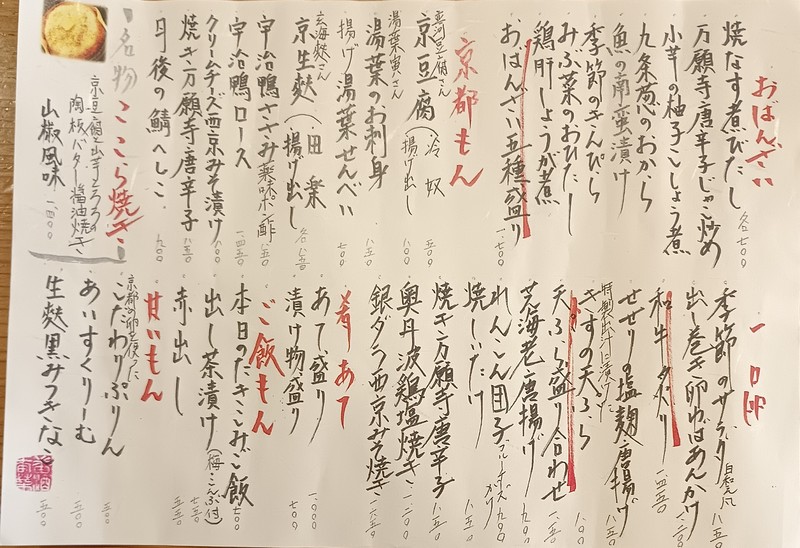 おばんざい
各七〇〇
焼なす煮びたし
万願寺唐辛子じゃこ炒め
小芋の柚子こしょう煮
九条葱のおから
魚の南蛮漬け
季節のきんぴら
みぶ菜のおひたし
鶏肝しょうが煮
おばんざい五種盛り
一、七〇〇
京都もん
京豆腐(冷奴 五〇〇
揚げ出し 八〇〇
湯葉寅さん
湯葉のお刺身 八五〇
揚げ湯葉せんべい 七〇〇
玄海麩さん
京生麩(田楽
揚げ出し 各八五〇
宇治鴨ささみ薬味ポン酢 八五〇
宇治鴨ロース 一、四五〇
クリームチーズ西京みそ漬け 八〇〇
焼き万願寺唐辛子 八五〇
丹後の鯖へしこ 九〇〇
名物 ここら焼き
京豆腐と山芋とろろの
陶板バター醤油焼き
山椒風味 一、四〇〇
一口師
季節のサラダ 白和え風 八五〇
出し巻き卵ゆばあんかけ
和牛
せせりの塩麹唐揚げ 八五〇
特製出汁に漬けた
きすの天ぷら 八〇〇
天ぷら盛り合わせ
芝海老唐揚げ 九〇〇
れんこん団子
焼しいたけ 八五〇
焼き万願寺唐辛子 八五〇
奥丹波鶏塩焼き
銀ダラ西京みそ焼き
肴あて
あて盛り 一、〇〇〇
漬け物盛り 七〇〇
ご飯もん
本日のたきこみご飯 七〇〇
出し茶漬け(梅・こんぶ付) 七五〇
赤出し 五五〇
甘いもん
京都の卵を使った
こだわりぷりん 五〇〇
あいすくりーむ 五〇〇
生麩黒みつきなこ 五五〇